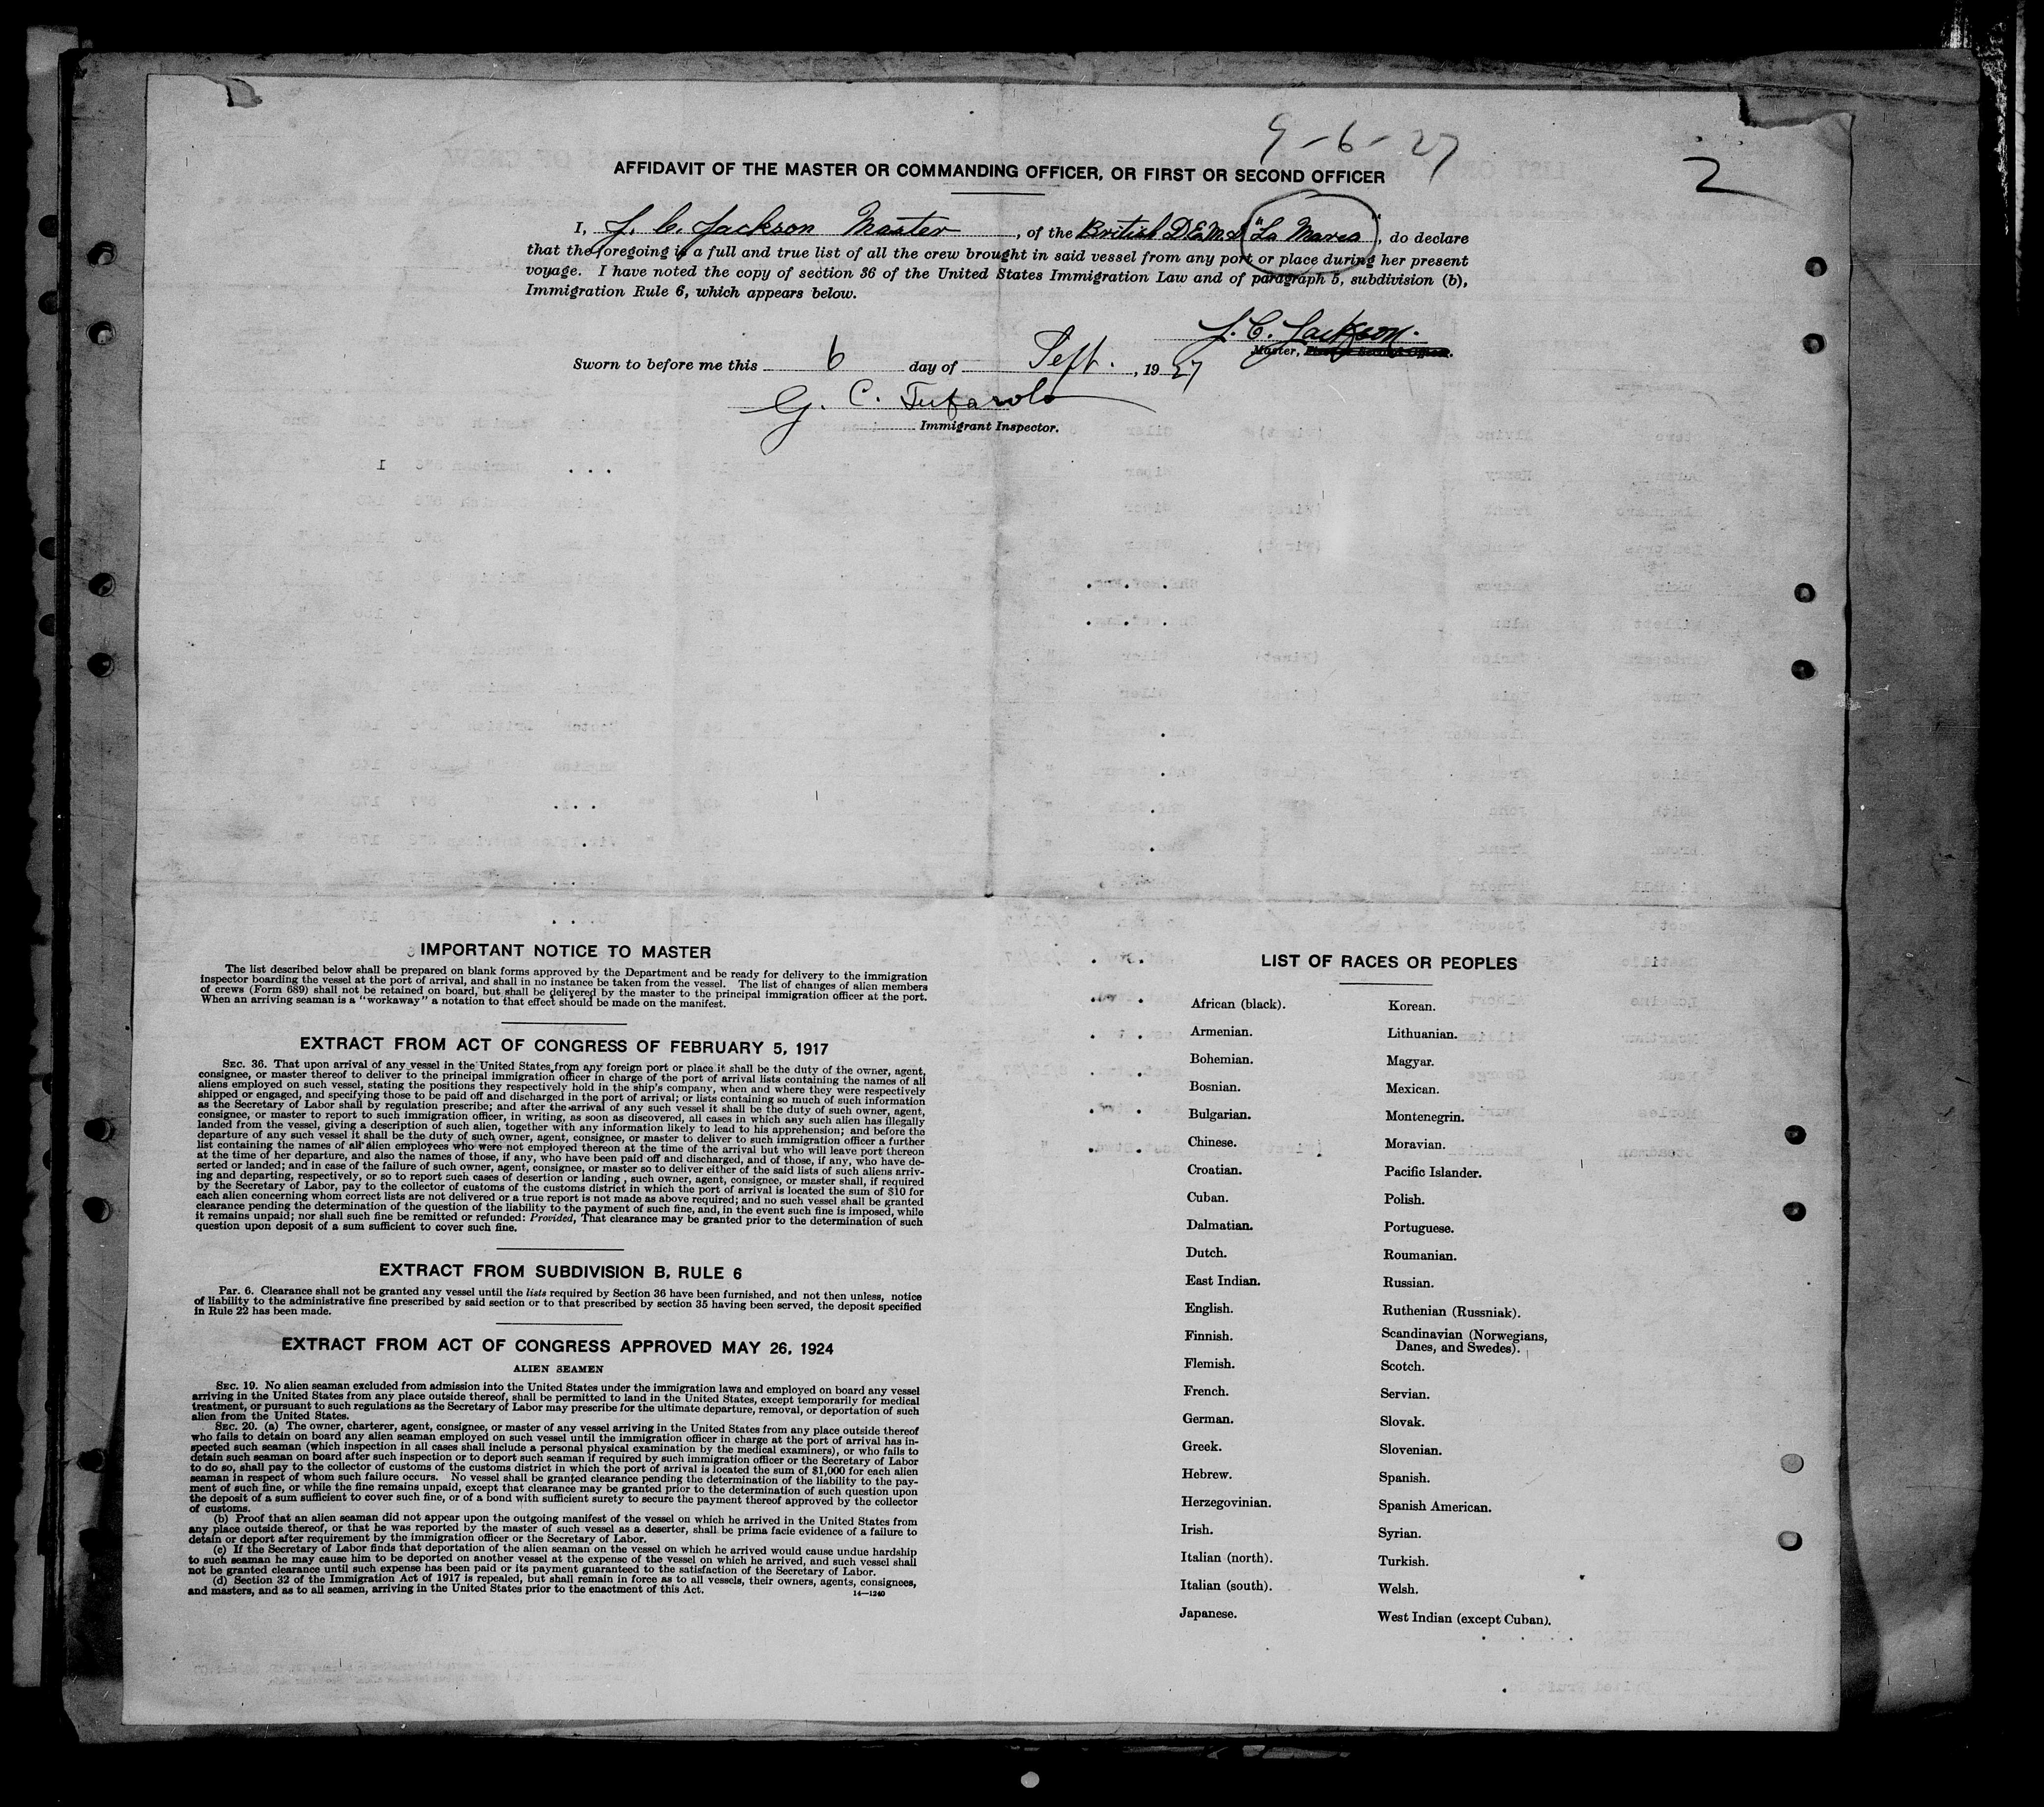 9-6-27
2
AFFIDAVIT OF THE MASTER OR COMMANDING OFFICER, OR FIRST OR SECOND OFFICER
I, J. C. Jackson Master, of the British D.E.M.S "La Marea", do declare
that the foregoing is a full and true list of all the crew brought in said vessel from any port or place during her present
voyage. I have noted the copy of section 36 of the United States Immigration Law and of paragraph 5, subdivision (b),
Immigration Rule 6, which appears below.
J. C. Jackson.
Master, First or Second Officer.
Sworn to before me this 6 day of Sept., 1927
G. C. Tufarolo
Immigrant Inspector.
IMPORTANT NOTICE TO MASTER
The list described below shall be prepared on blank forms approved by the Department and be ready for delivery to the immigration
inspector boarding the vessel at the port of arrival, and shall in no instance be taken from the vessel. The list of changes of alien members
of crews (Form 689) shall not be retained on board, but shall be delivered by the master to the principal immigration officer at the port.
When an arriving seaman is a "workaway" a notation to that effect should be made on the manifest.
EXTRACT FROM ACT OF CONGRESS OF FEBRUARY 5, 1917
SEC. 36. That upon arrival of any vessel in the United States from any foreign port or place it shall be the duty of the owner, agent,
consignee, or master thereof to deliver to the principal immigration officer in charge of the port of arrival lists containing the names of all
aliens employed on such vessel, stating the positions they respectively hold in the ship's company, when and where they were respectively
shipped or engaged, and specifying those to be paid off and discharged in the port of arrival; or lists containing so much of such information
as the Secretary of Labor shall by regulation prescribe; and after the arrival of any such vessel it shall be the duty of such owner, agent,
consignee, or master to report to such immigration officer, in writing, as soon as discovered, all cases in which any such alien has illegally
landed from the vessel, giving a description of such alien, together with any information likely to lead to his apprehension; and before the
departure of any such vessel it shall be the duty of such owner, agent, consignee, or master to deliver to such immigration officer a further
list containing the names of all alien employees who were not employed thereon at the time of the arrival but who will leave port thereon
at the time of her departure, and also the names of those, if any, who have been paid off and discharged, and of those, if any, who have de-
serted or landed; and in case of the failure of such owner, agent, consignee, or master so to deliver either of the said lists of such aliens arriv-
ing and departing, respectively, or so to report such cases of desertion or landing, such owner, agent, consignee, or master, shall, if required
by the Secretary of Labor, pay to the collector of customs of the customs district in which the port of arrival is located the sum of $10 for
each alien concerning whom correct lists are not delivered or a true report is not made as above required; and no such vessel shall be granted
clearance pending the determination of the question of the liability to the payment of such fine, and, in the event such fine is imposed, while
it remains unpaid; nor shall such fine be remitted or refunded: Provided, That clearance may be granted prior to the determination of such
question upon deposit of a sum sufficient to cover such fine.
EXTRACT FROM SUBDIVISION B, RULE 6
Par. 6. Clearance shall not be granted any vessel until the lists required by Section 36 have been furnished, and not then unless, notice
of liability to the administrative fine prescribed by said section or to that prescribed by section 35 having been served, the deposit specified
in Rule 22 has been made.
EXTRACT FROM ACT OF CONGRESS APPROVED MAY 26, 1924
ALIEN SEAMEN
SEC. 19. No alien seaman excluded from admission into the United States under the immigration laws and employed on board any vessel
arriving in the United States from any place outside thereof, shall be permitted to land in the United States, except temporarily for medical
treatment, or pursuant to such regulations as the Secretary of Labor may prescribe for the ultimate departure, removal, or deportation of such
alien from the United States.
SEC. 20. (a) The owner, charterer, agent, consignee, or master of any vessel arriving in the United States from any place outside thereof
who fails to detain on board any alien seaman employed on such vessel until the immigration officer in charge at the port of arrival has in-
spected such seaman (which inspection in all cases shall include a personal physical examination by the medical examiners), or who fails to
detain such seaman on board after such inspection or to deport such seaman if required by such immigration officer or the Secretary of Labor
to do so, shall pay to the collector of customs of the customs district in which the port of arrival is located the sum of $1,000 for each alien
seaman in respect of whom such failure occurs. No vessel shall be granted clearance pending the determination of the liability to the pay-
ment of such fine, or while the fine remains unpaid, except that clearance may be granted prior to the determination of such question upon
the deposit of a sum sufficient to cover such fine, or of a bond with sufficient surety to secure the payment thereof approved by the collector
of customs.
(b) Proof that an alien seaman did not appear upon the outgoing manifest of the vessel on which he arrived in the United States from
any place outside thereof, or that he was reported by the master of such vessel as a deserter, shall be prima facie evidence of a failure to
detain or deport after requirement by the immigration officer or the Secretary of Labor.
(c) If the Secretary of Labor finds that deportation of the alien seaman on the vessel on which he arrived would cause undue hardship
to such seaman he may cause him to be deported on another vessel at the expense of the vessel on which he arrived, and such vessel shall
not be granted clearance until such expense has been paid or its payment guaranteed to the satisfaction of the Secretary of Labor.
(d) Section 32 of the Immigration Act of 1917 is repealed, but shall remain in force as to all vessels, their owners, agents, consignees,
and masters, and as to all seamen, arriving in the United States prior to the enactment of this Act.
14—1240
LIST OF RACES OR PEOPLES
African (black).
Armenian.
Bohemian.
Bosnian.
Bulgarian.
Chinese.
Croatian.
Cuban.
Dalmatian.
Dutch.
East Indian.
English.
Finnish.
Flemish.
French.
German.
Greek.
Hebrew.
Herzegovinian.
Irish.
Italian (north).
Italian (south).
Japanese.
Korean.
Lithuanian.
Magyar.
Mexican.
Montenegrin.
Moravian.
Pacific Islander.
Polish.
Portuguese.
Roumanian.
Russian.
Ruthenian (Russniak).
Scandinavian (Norwegians,
Danes, and Swedes).
Scotch.
Servian.
Slovak.
Slovenian.
Spanish.
Spanish American.
Syrian.
Turkish.
Welsh.
West Indian (except Cuban).